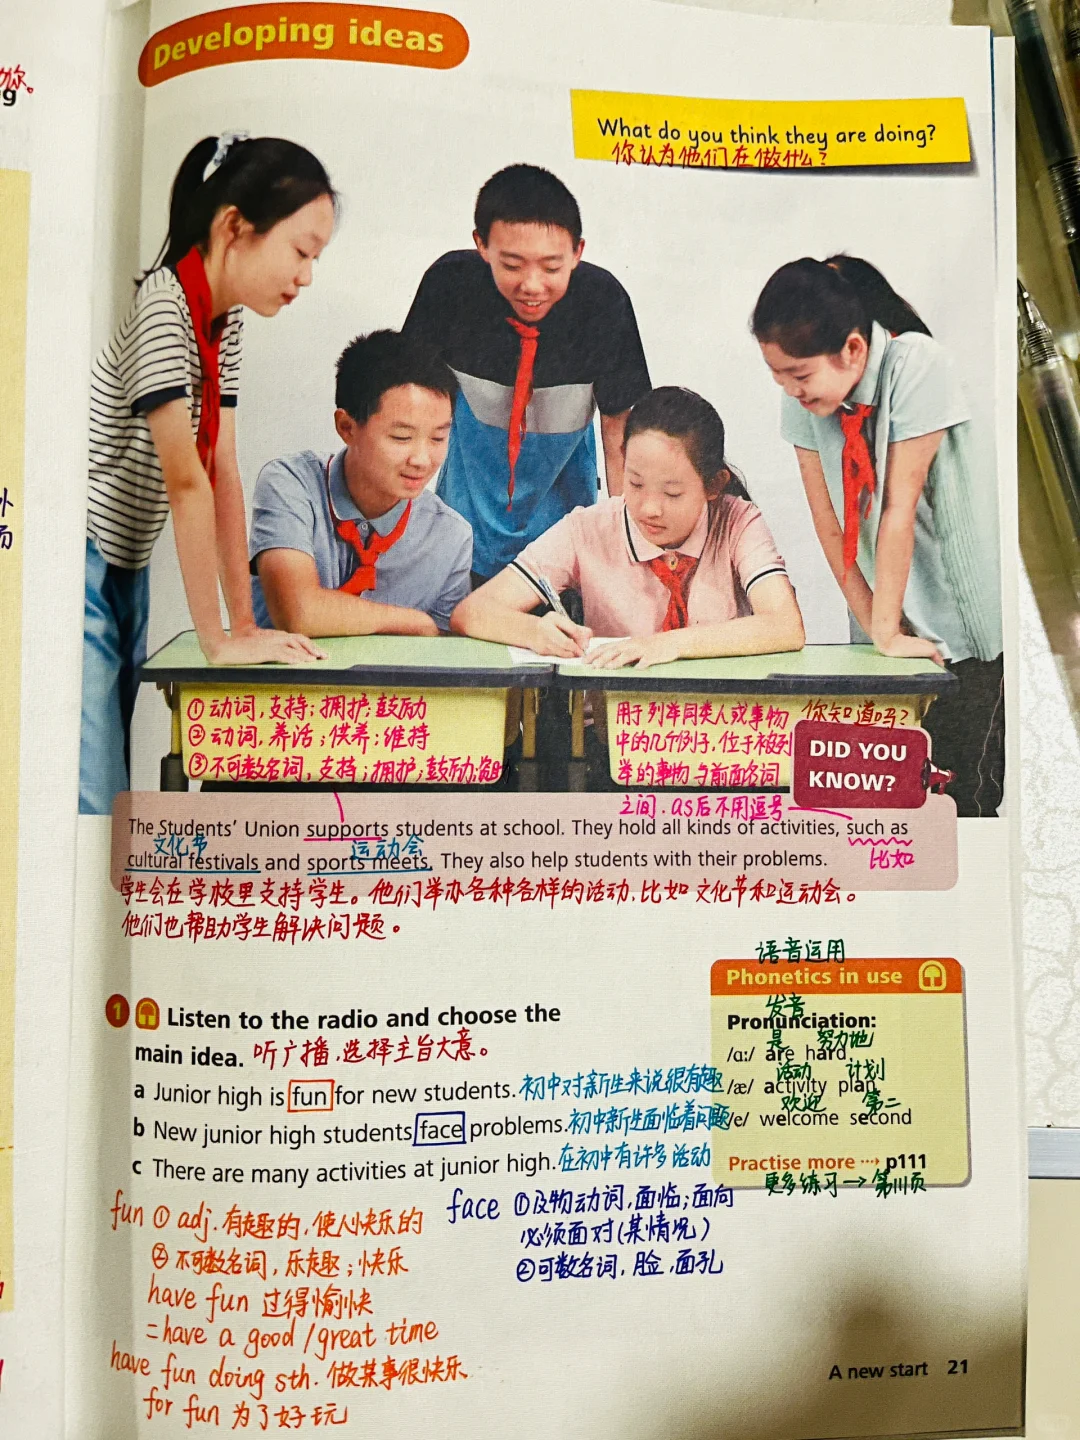 Developing ideas
What do you think they are doing?
你认为他们在做什么?
①动词,支持;拥护;鼓励
②动词,养活;供养;维持
③不可数名词,支持;拥护,鼓励,资助
用于列举同类人或事物
中的几个例子,位于被列
举的事物与前面名词
之间.as后不用逗号
你知道吗?
DID YOU
KNOW?
The Students' Union supports students at school. They hold all kinds of activities, such as
文化节 运动会
比如
cultural festivals and sports meets. They also help students with their problems.
学生会在学校里支持学生。他们举办各种各样的活动,比如文化节和运动会。
他们也帮助学生解决问题。
1 Listen to the radio and choose the
main idea. 听广播,选择主旨大意。
a Junior high is fun for new students. 初中对新生来说很有趣
b New junior high students face problems. 初中新生面临着问题
c There are many activities at junior high. 在初中有许多活动
语音运用
Phonetics in use
发音
Pronunciation:
是 努力地
/ɑː/ are hard
活动 计划
/æ/ activity plan
欢迎 第二
/e/ welcome second
Practise more ··→ p111
更多练习→第111页
fun ① adj.有趣的,使人快乐的
②不可数名词,乐趣;快乐
have fun 过得愉快
=have a good/great time
have fun doing sth. 做某事很快乐
for fun 为了好玩
face ①及物动词,面临;面向
必须面对(某情况)
②可数名词,脸,面孔
A new start 21
动你。
g
外
而